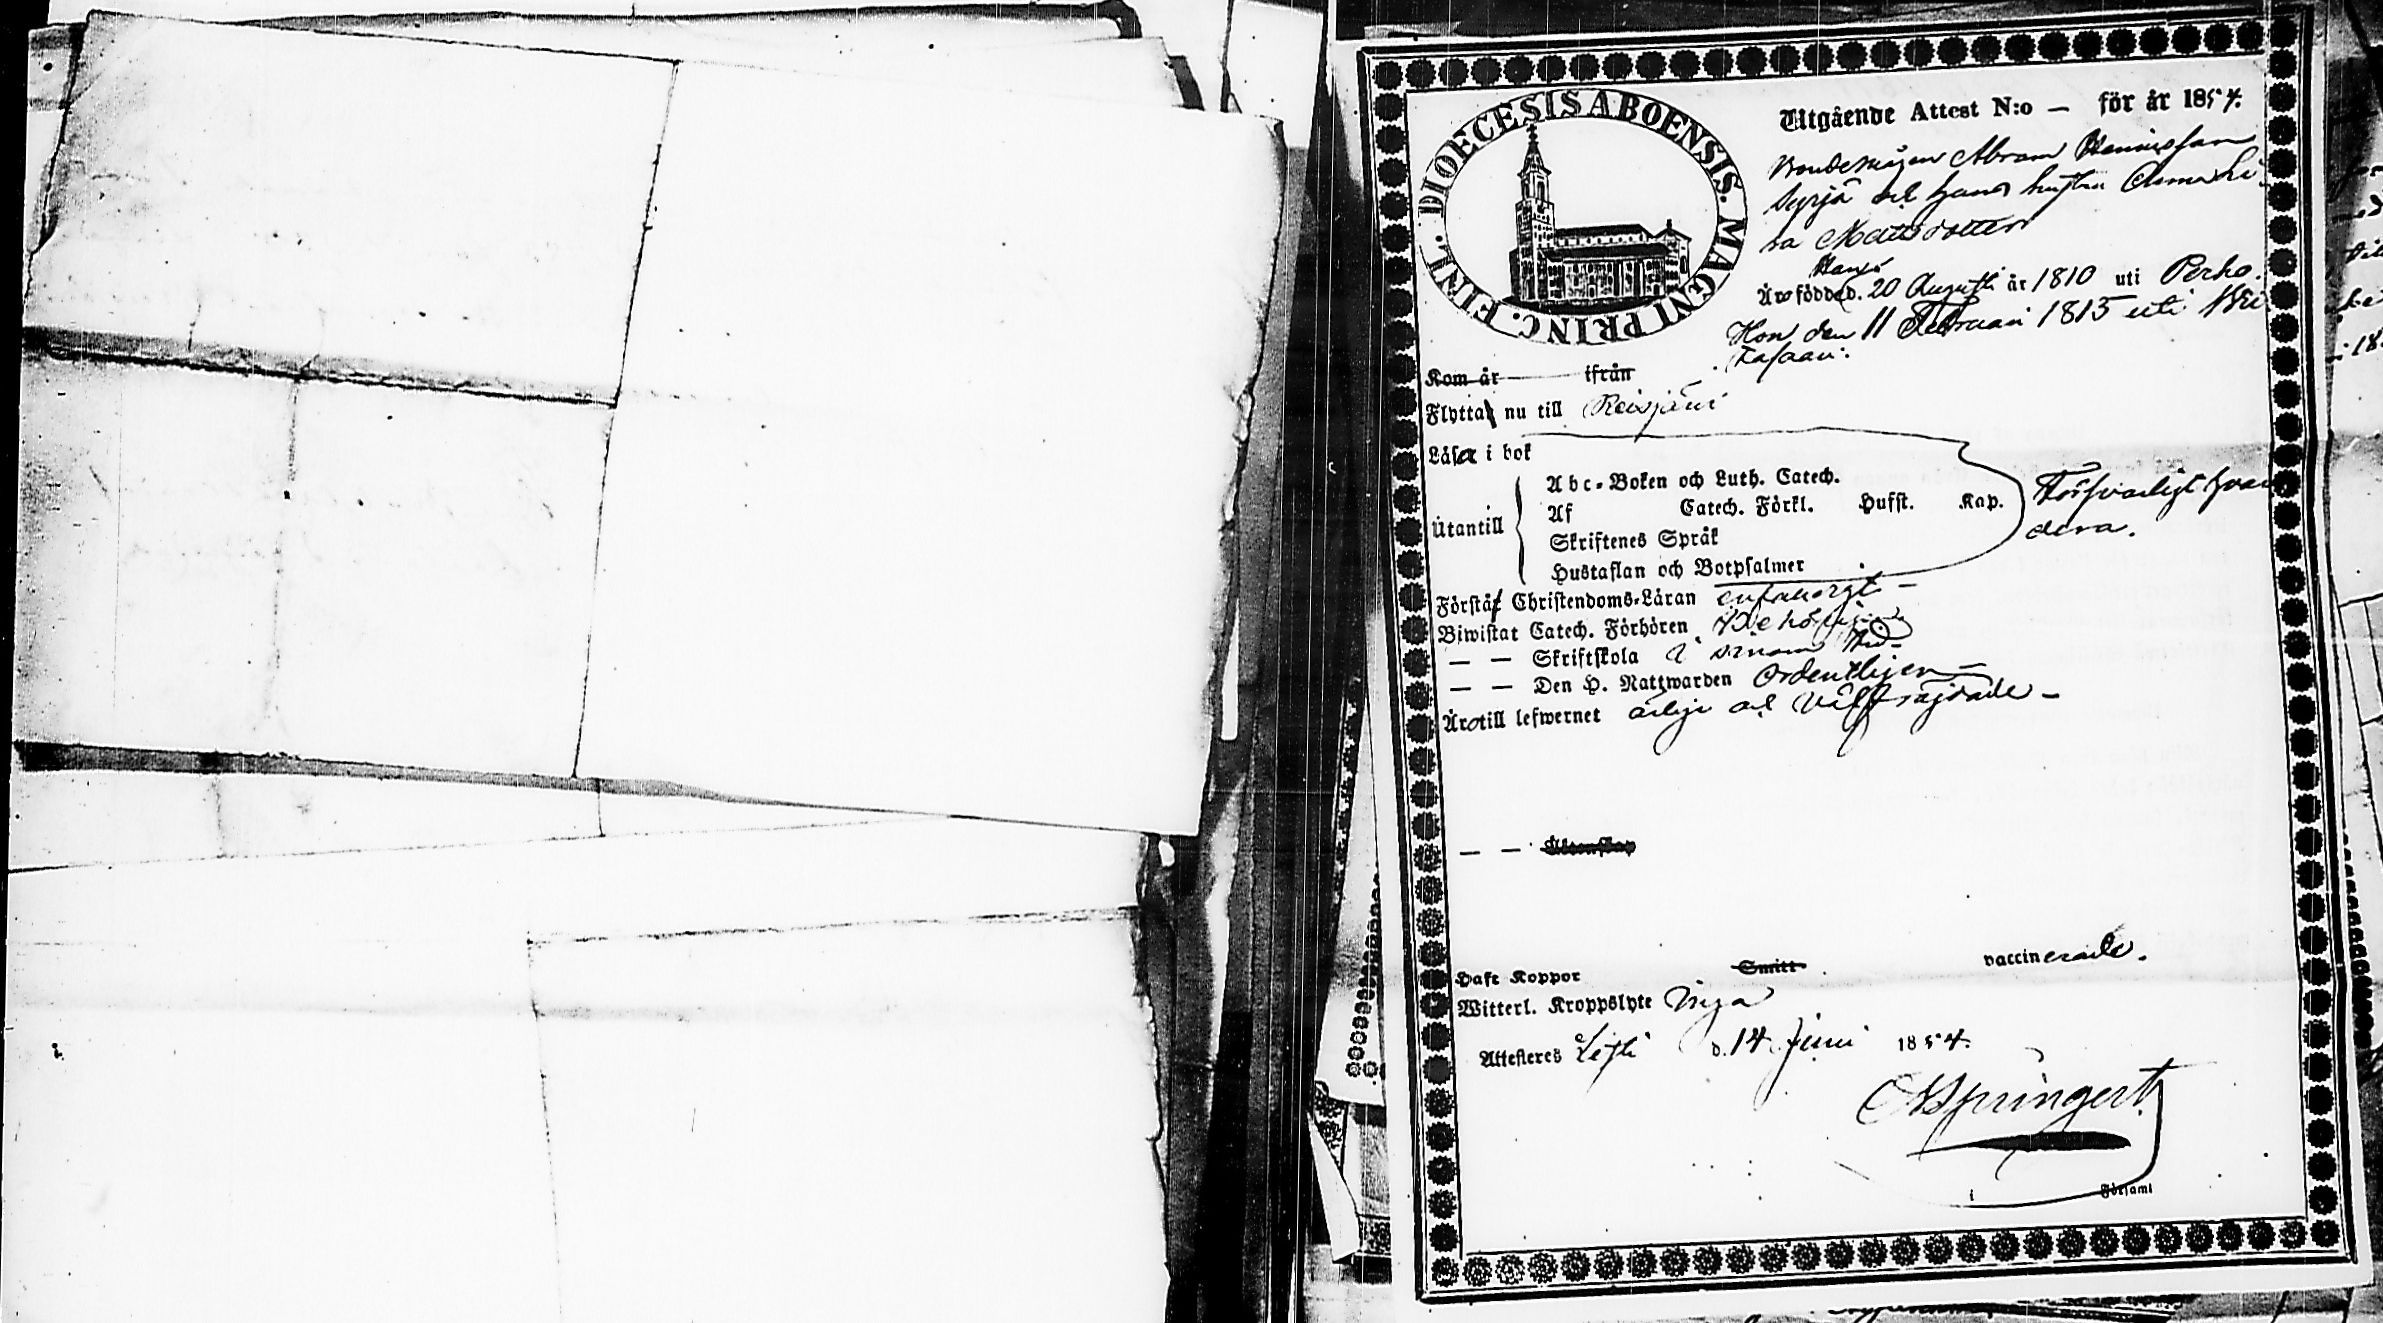 DIOECESIS ABOENSIS. MAGNI PRINC. FINL.
Utgående Attest N:o — för år 1854.
Bondemågen Abram Henricsson
Syrjä och hans hustru Anna Li-
sa Mattsdotter
Hans
Äro födde d. 20 Augusti år 1810 uti Perho.
Hon den 11 Februari 1815 uti
Kom år ifrån
Flytta nu till Reisjärvi
Läsa i bok
Abc-Boken och Luth. Catech.
Af Catech. Förkl. Husst. Kap.
Utantill
Skriftenes Språk
Hustaflan och Botpsalmer
Försvarligt hvar-
dera.
Förstå Christendoms-Läran enfaldigt —
Biwistat Catech. Förhören Behörigen
— — Skriftskola i sinom tid
— — Den H. Nattwarden Ordentligen —
Äro till lefwernet ärlige och välfräjdade —
— — Äktenskap
Haft Koppor Smitt vaccinerade.
Witterl. Kroppslyte Inga
Attesteres Lesti d. 14 Juni 1854.
Springert
i Församl